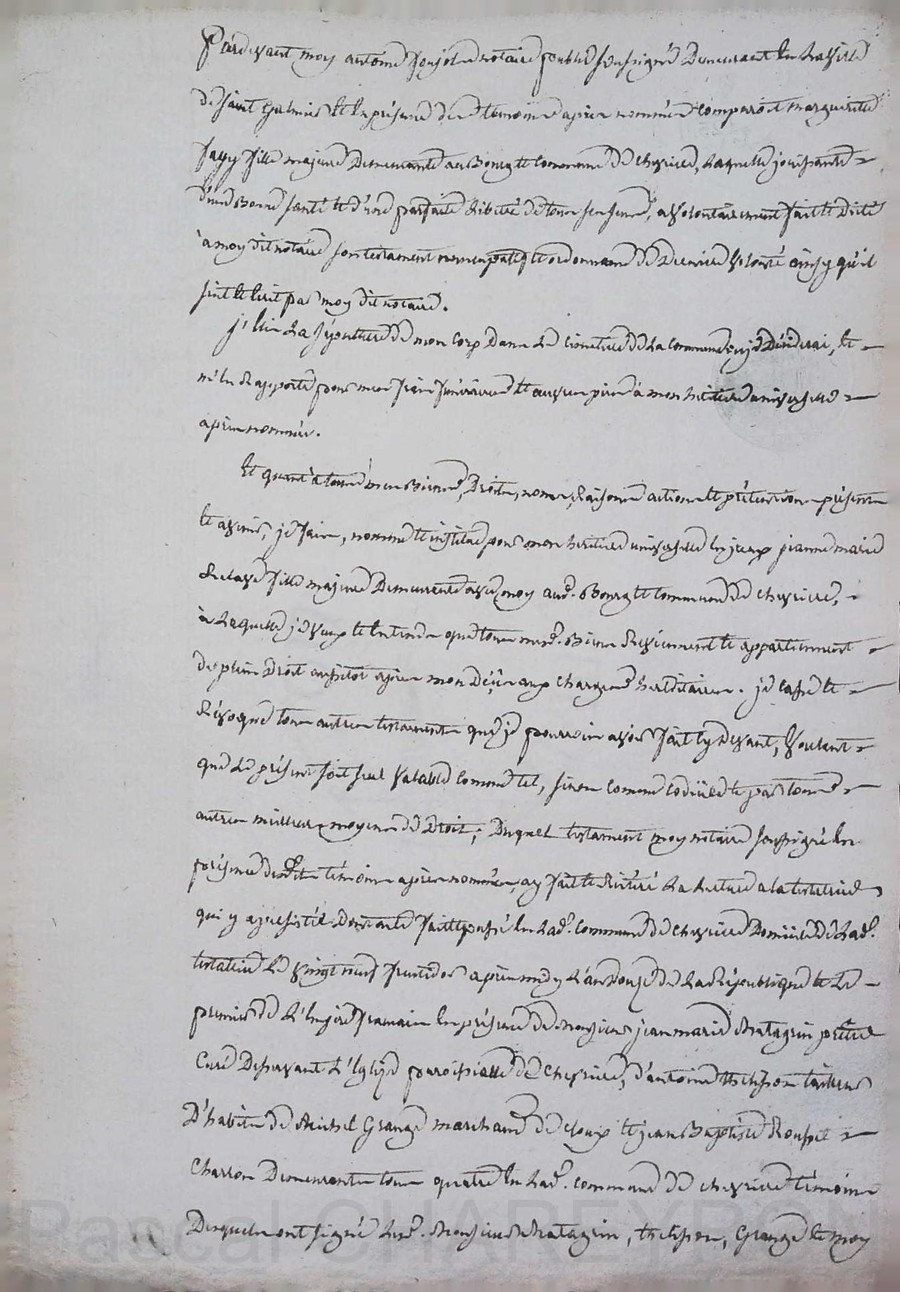 Pardevant moy antoine Ponjol notaire public soussigné Demeurant en La ville
de saint Galmier et En présence des temoins après nommés comparoit marguerite
fagy fille majeure Demeurante au Bourg et commune de chevrieres, Laquelle jouissante
d'une Bonne santé et d'une parfaite Liberté de tous ses sens, a volontairement fait et Dicté
à moy dit notaire son testament nuncupatif et ordonnance de Derniere volonté ainsy qu'il
suit et Ecrit par moy dit notaire.
j'Elis La sépulture de mon corps Dans Le cimetiere de La commune ou je Décederai, et
m'En Rapporte pour mes frais funéraires et œuvres pies à mon héritiere universelle
après nommée.
Et quant à tous mes Biens, Droits, noms, Raisons actions et prétentions présents
et avenir, je fais, nomme et institue pour mon héritiere universelle jeanne marie
fille majeure Demeurante avec moy aud. Bourg et commune de chevrieres,
à Laquelle je veux et Entends que tous mesd. Biens Reviennent et appartiennent
de plein Droit aussitot après mon Décès aux charges héréditaires. je casse et
Révoque tous autres testaments que je pourrois avoir fait cy Devant, Voulant
que Le présent soit seul valable comme tel, sinon comme codicile et par tous
autres meilleurs moyens de Droit; Duquel testament moy notaire soussigné En
présence desdits témoins après nommés, ay fait et Réitéré La Lecture a la testatrice
qui y a persisté. Dont acte fait et passé En Lad. commune de chevrieres Domicile de Lad.
testatrice Le vingt neuf fructidor après midy L'an Douze de La République et Le
premier de L'Empire francais En présence de Monsieur jean marie Chatagnon prêtre
curé Desservant L'Eglise parroissialle de chevrieres, d'antoine thelisson tailleur
D'habits de Michel Grange marchand de cloux et jean Baptiste Roussel
charron Demeurants tous quatre En Lad. commune de chevrieres témoins
Desquels ont signé Lesd. Monsieur Chatagnon, thelisson, Grange et moy
Pascal CHAREYRON